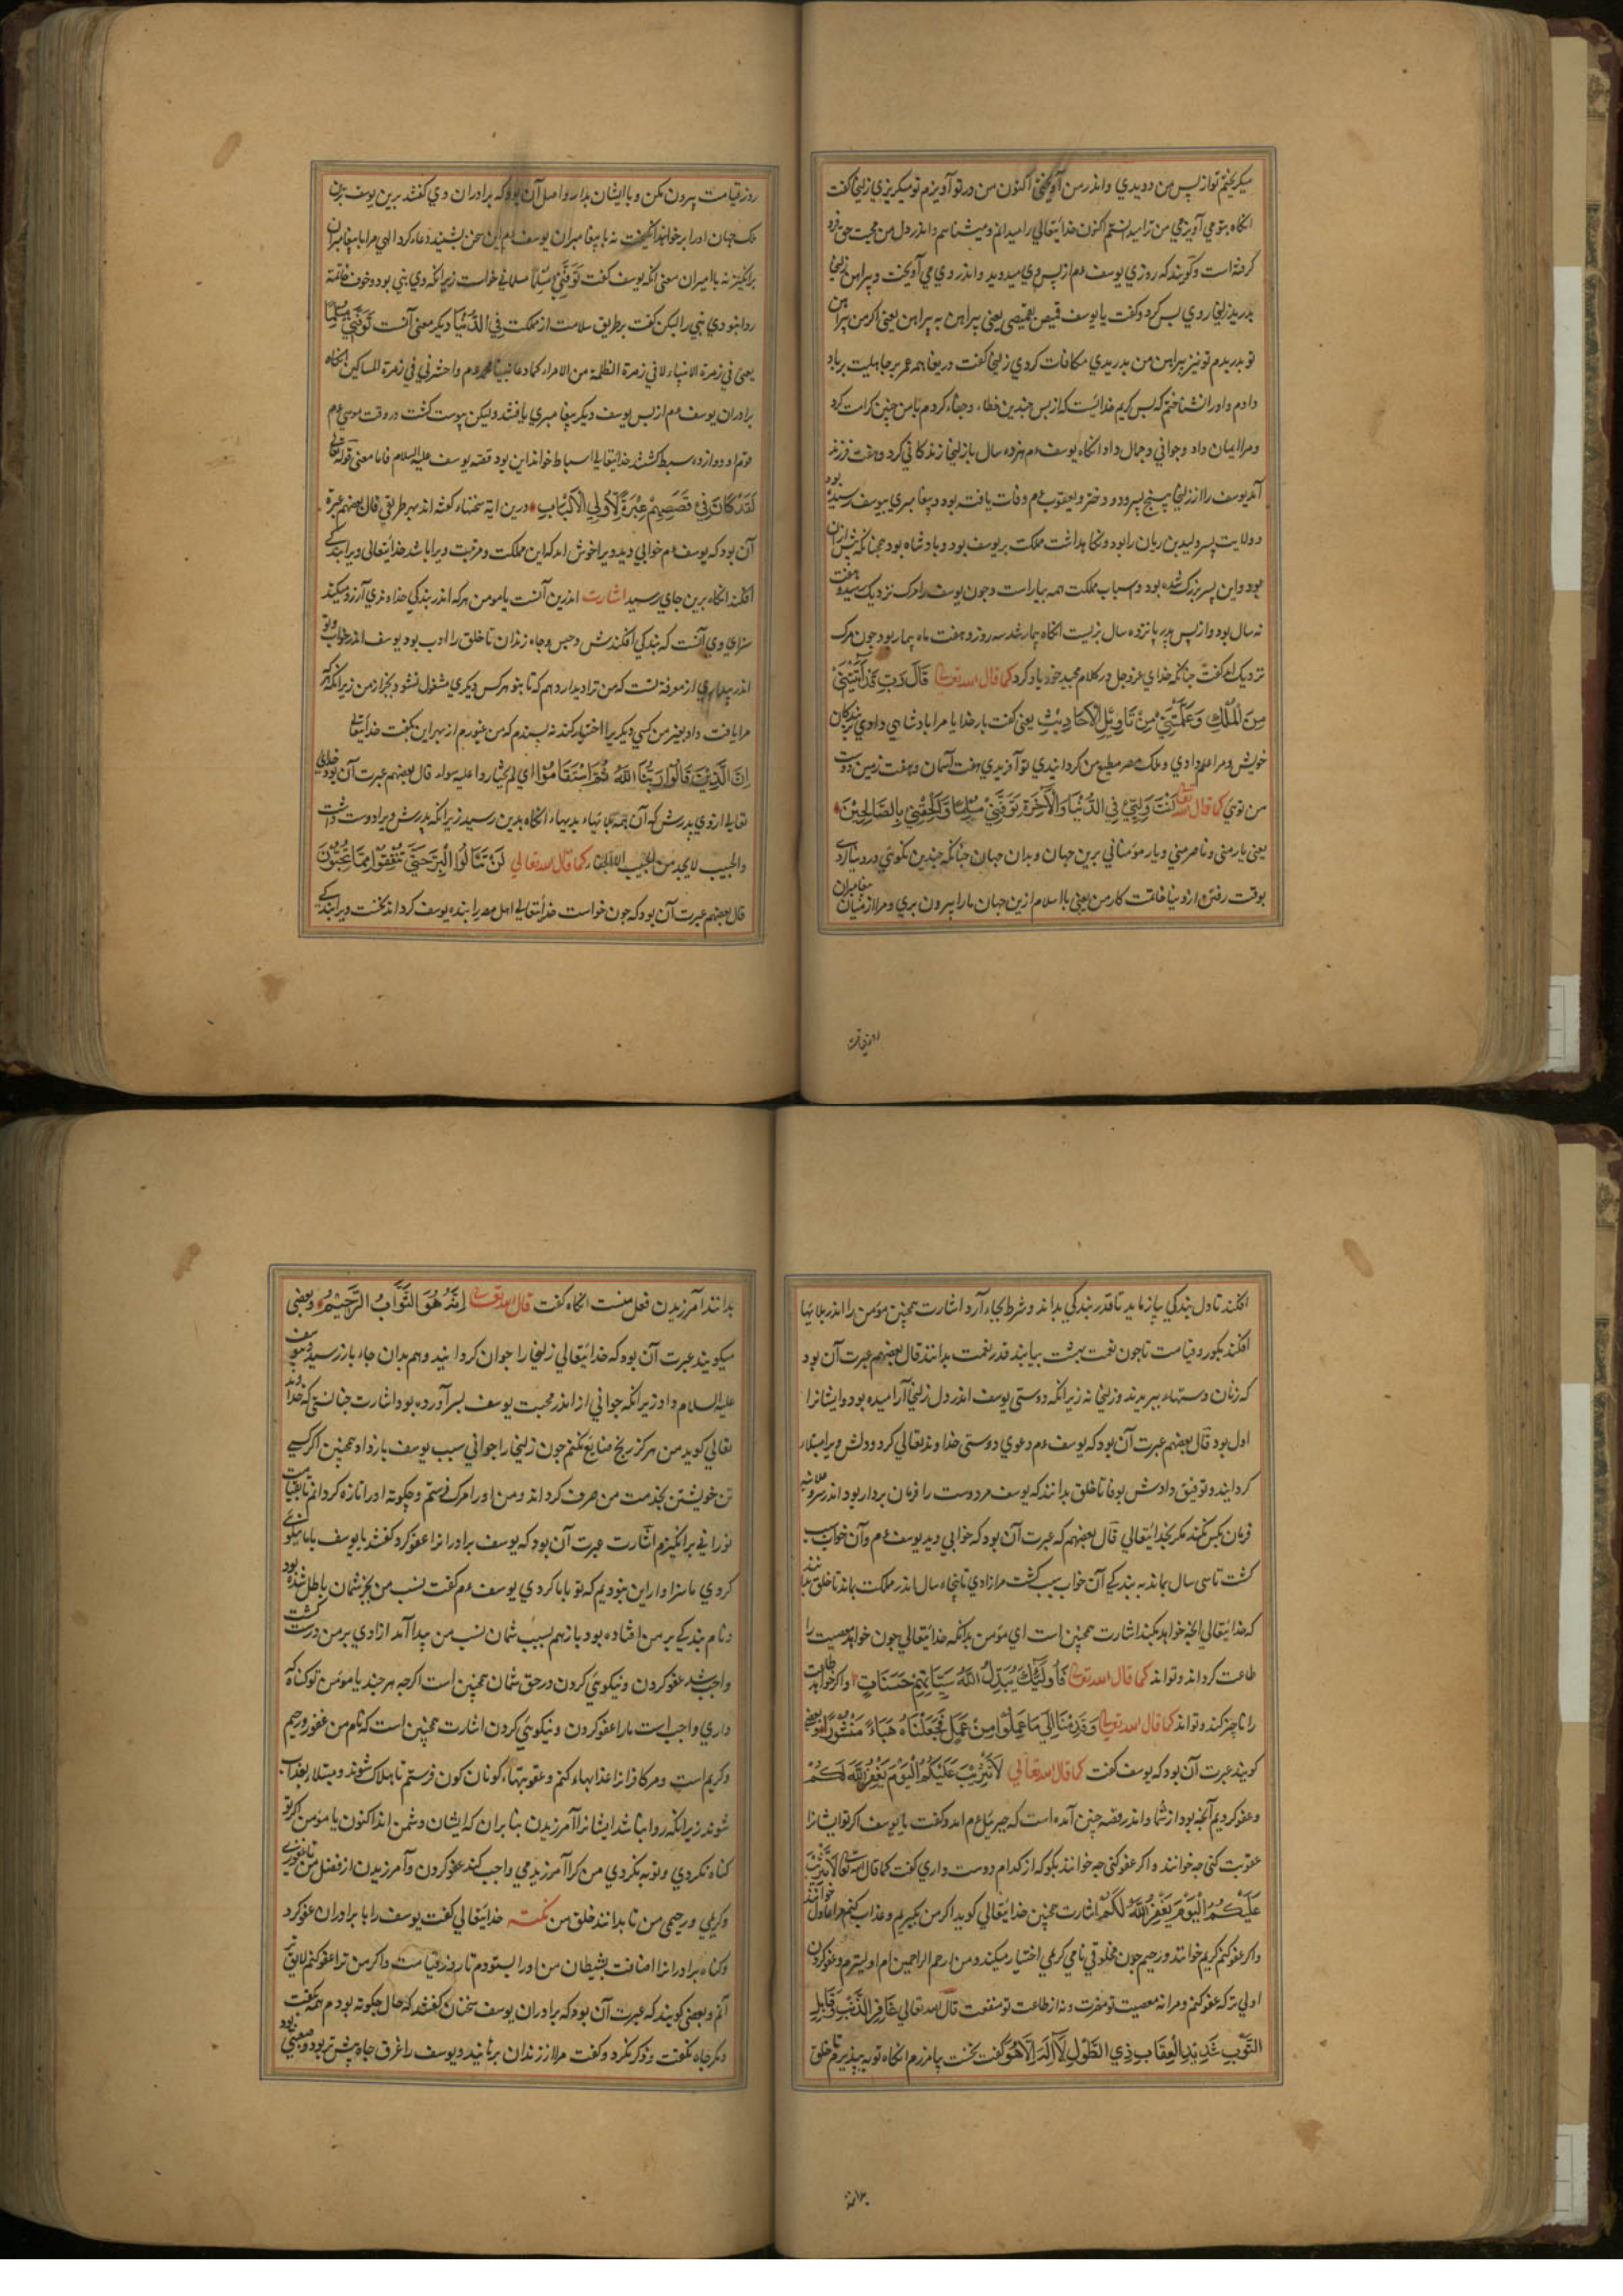 میکریختم تو از پس من دویدی و اندر من آویختی اکنون من در تو آویزم تو میکریزی زلیخا کفت
انکاه بتو می آویزمی من ترا میدانستم اکنون خدایتعالی را میدانم و میشناسم و اندر دل من محبت حق فرو
کرفته است و کویند که روزی یوسف ءم از پس وی میدوید و اندر وی می آویخت و پیراهن زلیخا
بدرید زلیخا روی پس کرد و کفت یا یوسف قمیص بقمیصی یعنی پیراهن به پیراهن یعنی اکر من پیراهن
تو بدریدم تو نیز پیراهن من بدریدی مکافات کردی زلیخا کفت دریغا همه عمر بر جاهلیت بر باد
دادم و او را نشناختم که بس کریم خدائیست که از پس چندین خطا و جفا کردم با من چنین کرامت کرد
و مرا ایمان داد و جوانی و جمال داد انکاه یوسف ءم هژده سال با زلیخا زندکانی کرد و هفت فرزند
آمد یوسف را از زلیخا پنج پسر و دو دختر و یعقوب ءم وفات یافته بود و پیغامبری بیوسف رسیده بود
و ولایت پسر ولید بن ریان را بود و نکاهداشت مملکت بر یوسف بود و پادشاه بود همچنانکه پیش ازان
بود و این پسر بزرک شده بود و اسباب مملکت همه بیاراست و چون یوسف را مرک نزدیک رسید و هفت
نه سال بود و از پس پدر پانزده سال بزیست انکاه بیمار شد سه روز و هفت ماه بیمار بود چون مرک
نزدیک آمد کفت چنانکه خدای عز و جل در کلام مجید خود یاد کرد کما قال الله تعالی قَالَ رَبِّ قَدْ آتَيْتَنِي
مِنَ الْمُلْكِ وَعَلَّمْتَنِي مِنْ تَأْوِيلِ الْأَحَادِيثِ یعنی کفت بار خدایا مرا پادشاهی دادی بر بندکان
خویش و مرا علم دادی و ملک مصر مطیع من کردانیدی تو آفریدی هفت آسمان و هفت زمین دوست
من توی کما قال الله تعا أَنْتَ وَلِيِّي فِي الدُّنْيَا وَالْآخِرَةِ تَوَفَّنِي مُسْلِمًا وَأَلْحِقْنِي بِالصَّالِحِينَ
یعنی یار منی و ناصر منی و یار مؤمنانی برین جهان و بدان جهان چنانکه چندین نکوئی در دنیا کردی
بوقت رفتن از دنیا خاتمت کار من یعنی باسلام ازین جهان ما را بیرون بری و مرا از میان پیغامبران
روز قیامت
روز قیامت بیرون مکن و با ایشان بدار و اصل آن بود که برادران وی کفتند برین یوسف برین
ملک جهان او را برخواند انکیخت نه با پیغامبران یوسف ءم این سخن بشنید دعاء کرد الهی مرا با پیغامبران
برانکیز نه با امیران معنی انکه یوسف کفت تَوَفَّنِي مُسْلِمًا مسلمانی خواست زیرا انکه وی نبی بود و خوف خاتمة
روا نبودی نبی را لیکن کفت بر طریق سلامت از مملکت فِي الدُّنْيَا دیکر معنی آنست تَوَفَّنِي مُسْلِمًا
یعنی فی زمرة الانبیاء لا فی زمرة الظلمة من الامراء کما دعا نبینا محمد ءم واحشرنی فی زمرة المساکین انکاه
برادران یوسف ءم از پس یوسف دیکر پیغامبری یافتند ولیکن پیوست کشت در وقت موسی ءم
قوم او دوازده سبط کشتند خدایتعالی اسباط خواند این بود قصه یوسف علیه السلام فاما معنی قوله تعالی
لَقَدْ كَانَ فِي قَصَصِهِمْ عِبْرَةٌ لِأُولِي الْأَلْبَابِ درین ایة سخنها کفته اند بهر طریقی قال بعضهم عبرة
آن بود که یوسف ءم خوابی دید ویرا خوش آمد که این مملکت و مرتبت ویرا باشد خدایتعالی ویرا بندکی
افکند انکاه برین جای رسید اشارت اندرین آنست یا مومن هر که اندر بندکی خداوندی آرزو میکند
سزای وی آنست که بندکی افکندش و حبس و چاه زندان تا خلق را ادب بود و یوسف اندر خواب
اندر بیداری از معرفة تست که من ترا دیدار دهم که تا بتو هر کس دیکری مشغول نشود بجز از من زیرا انکه هر که
مرا یافت داد بغیر من کسی دیکر را اختیار کند نه پسندم که من غیورم از بهر این بکفت خدایتعا
إِنَّ الَّذِينَ قَالُوا رَبُّنَا اللَّهُ ثُمَّ اسْتَقَامُوا ای لم یختاروا علیه سواه قال بعضهم عبرت آن بود خدای
تعالی از وی پدرش که آن همه بلا بهاء بدیهاء انکاه بدین رسید زیرا انکه پدرش ویرا دوست داشت
والحبیب لا یجد من الحبیب الا الجفا کما قال الله تعالی لَنْ تَنَالُوا الْبِرَّ حَتَّى تُنْفِقُوا مِمَّا تُحِبُّونَ
قال بعضهم عبرت آن بود که چون خواست خدایتعالی اهل مصر را بنده یوسف کرداند نخست ویرا بندکی
افکند تا دل بندکی بیازماید تا قدر بندکی بداند و شرط بجاء آرد اشارت همچنین مؤمن را اندر بلایها
افکند بکور و قیامت تا چون نعمت بهشت بیابند قدر نعمت بدانند قال بعضهم عبرت آن بود
که زنان دستهاء ببریدند و زلیخا نه زیرا انکه دوستی یوسف اندر دل زلیخا آرامیده بود و ایشانرا
اول بود قال بعضهم عبرت آن بود که یوسف ءم دعوی دوستی خداوند تعالی کرد و دلش ویرا مبتلا
کردانید و توفیق دادش بوفا تا خلق بدانند که یوسف مر دوست را فرمان بردار بود اندر سر و علانیه
فرمان کس نکند مکر بخدایتعالی قال بعضهم که عبرت آن بود که خوابی دید یوسف ءم و آن خواب سبب
کشت تا سی سال بماند به بندکی آن خواب سبب کشت مر ازادی تا پنجاه سال اندر مملکت بماند تا خلق بدانند
که خدایتعالی انچه خواهد بکند اشارت همچنین است ای مؤمن بدانکه خدایتعالی چون خواهد معصیت را
طاعت کرداند و تواند کما قال الله تعالی فَأُولَئِكَ يُبَدِّلُ اللَّهُ سَيِّئَاتِهِمْ حَسَنَاتٍ و اکر خواهد طاعت
را ناچیز کند و تواند کما قال الله تعالی وَقَدِمْنَا إِلَى مَا عَمِلُوا مِنْ عَمَلٍ فَجَعَلْنَاهُ هَبَاءً مَنْثُورًا و بعضی
کویند عبرت آن بود که یوسف کفت کما قال الله تعالی لَا تَثْرِيبَ عَلَيْكُمُ الْيَوْمَ يَغْفِرُ اللَّهُ لَكُمْ
و عفو کردیم آنچه بود از شما و اندر قصه چنین آمده است که جبرئیل ءم آمد و کفت یا یوسف اکر تو ایشانرا
عقوبت کنی چه خوانند و اکر عفو کنی چه خوانند بکو که از کدام دوست داری کفت کما قال الله تعا لَا تَثْرِيبَ
عَلَيْكُمُ الْيَوْمَ يَغْفِرُ اللَّهُ لَكُمْ اشارت همچنین خدایتعالی کوید اکر من بکیریم و عذاب کنم مرا عادل خوانند
و اکر عفو کنم کریم خوانند و رحیم چون مخلوقی نامی کریمی اختیار میکند و من ارحم الراحمین ام اولیترم و عفو کردن
اولی تر که عفو کنم و مرا نه معصیت تو مضرت و نه از طاعت تو منفعت قال الله تعالی غَافِرِ الذَّنْبِ وَقَابِلِ
التَّوْبِ شَدِيدِ الْعِقَابِ ذِي الطَّوْلِ لَا إِلَهَ إِلَّا هُوَ کفت نخست بیامرزم انکاه توبه بپذیرم تا خلق
بدانند
بدانند آمرزیدن فعل منست انکاه کفت قال الله تعالی إِنَّهُ هُوَ التَّوَّابُ الرَّحِيمُ و بعضی
میکویند عبرت آن بود که خدایتعالی زلیخا را جوان کردانید و هم بدان جاء باز رسید و یوسف
علیه السلام داد زیرا انکه جوانی از اندر محبت یوسف بسر آورده بود و اشارت چنانستی که خداوند
تعالی کوید من هرکز رنج ضایع نکنم چون زلیخا را جوانی سبب یوسف باز داد همچنین اکر کسی
تن خویشتن بخدمت من صرف کرداند و من او را مرک فرستم و چکونه او را تازه کردانم تا بقیامت
نورانی برانکیزم اشارت عبرت آن بود که یوسف برادرانرا عفو کرد و کفتند یا یوسف با ما نیکوئی
کردی ما سزاوار این نبودیم که تو با ما کردی یوسف ءم کفت نسب من بجز شمان باطل شده بود
و نام بندکی بر من افتاده بود باز هم بسبب شمان نسب من پیدا آمد ازادی بر من درست کشت
واجب شد عفو کردن و نیکوئی کردن در حق شمان همچنین است اکرچه هر چند یا مومن تو کناه که
داری واجب است ما را عفو کردن و نیکوئی کردن اشارت همچنین است که نام من غفور و رحیم
و کریم است و مر کافرانرا عذابهاء کنم و عقوبتهاء کوناکون فرستم تا هلاک شوند و مبتلا بعذاب
شوند زیرا انکه روا نباشد ایشانرا آمرزیدن بنا بران که ایشان دشمن اند اکنون یا مومن اکر تو
کناه نکردی و توبه نکردی من کرا آمرزیدمی واجب کند عفو کردن و آمرزیدن از فضل من تا غفوری
و کریمی و رحیمی من تا بدانند خلق من نکته خدایتعالی کفت یوسف را با برادران عفو کرد
و کناه برادرانرا اضافت بشیطان من او را بستودم تا روز قیامت و اکر من ترا عفو کنم لایق تر
آنم و بعضی کویند که عبرت آن بود که برادران یوسف سخنان کفتند که حال چکونه بودم همه بکفت
مکر چاه نکفت و ذکر نکرد و کفت مرا از زندان برهانید و یوسف را غرق چاه پیش تر بود و صعبتر بود